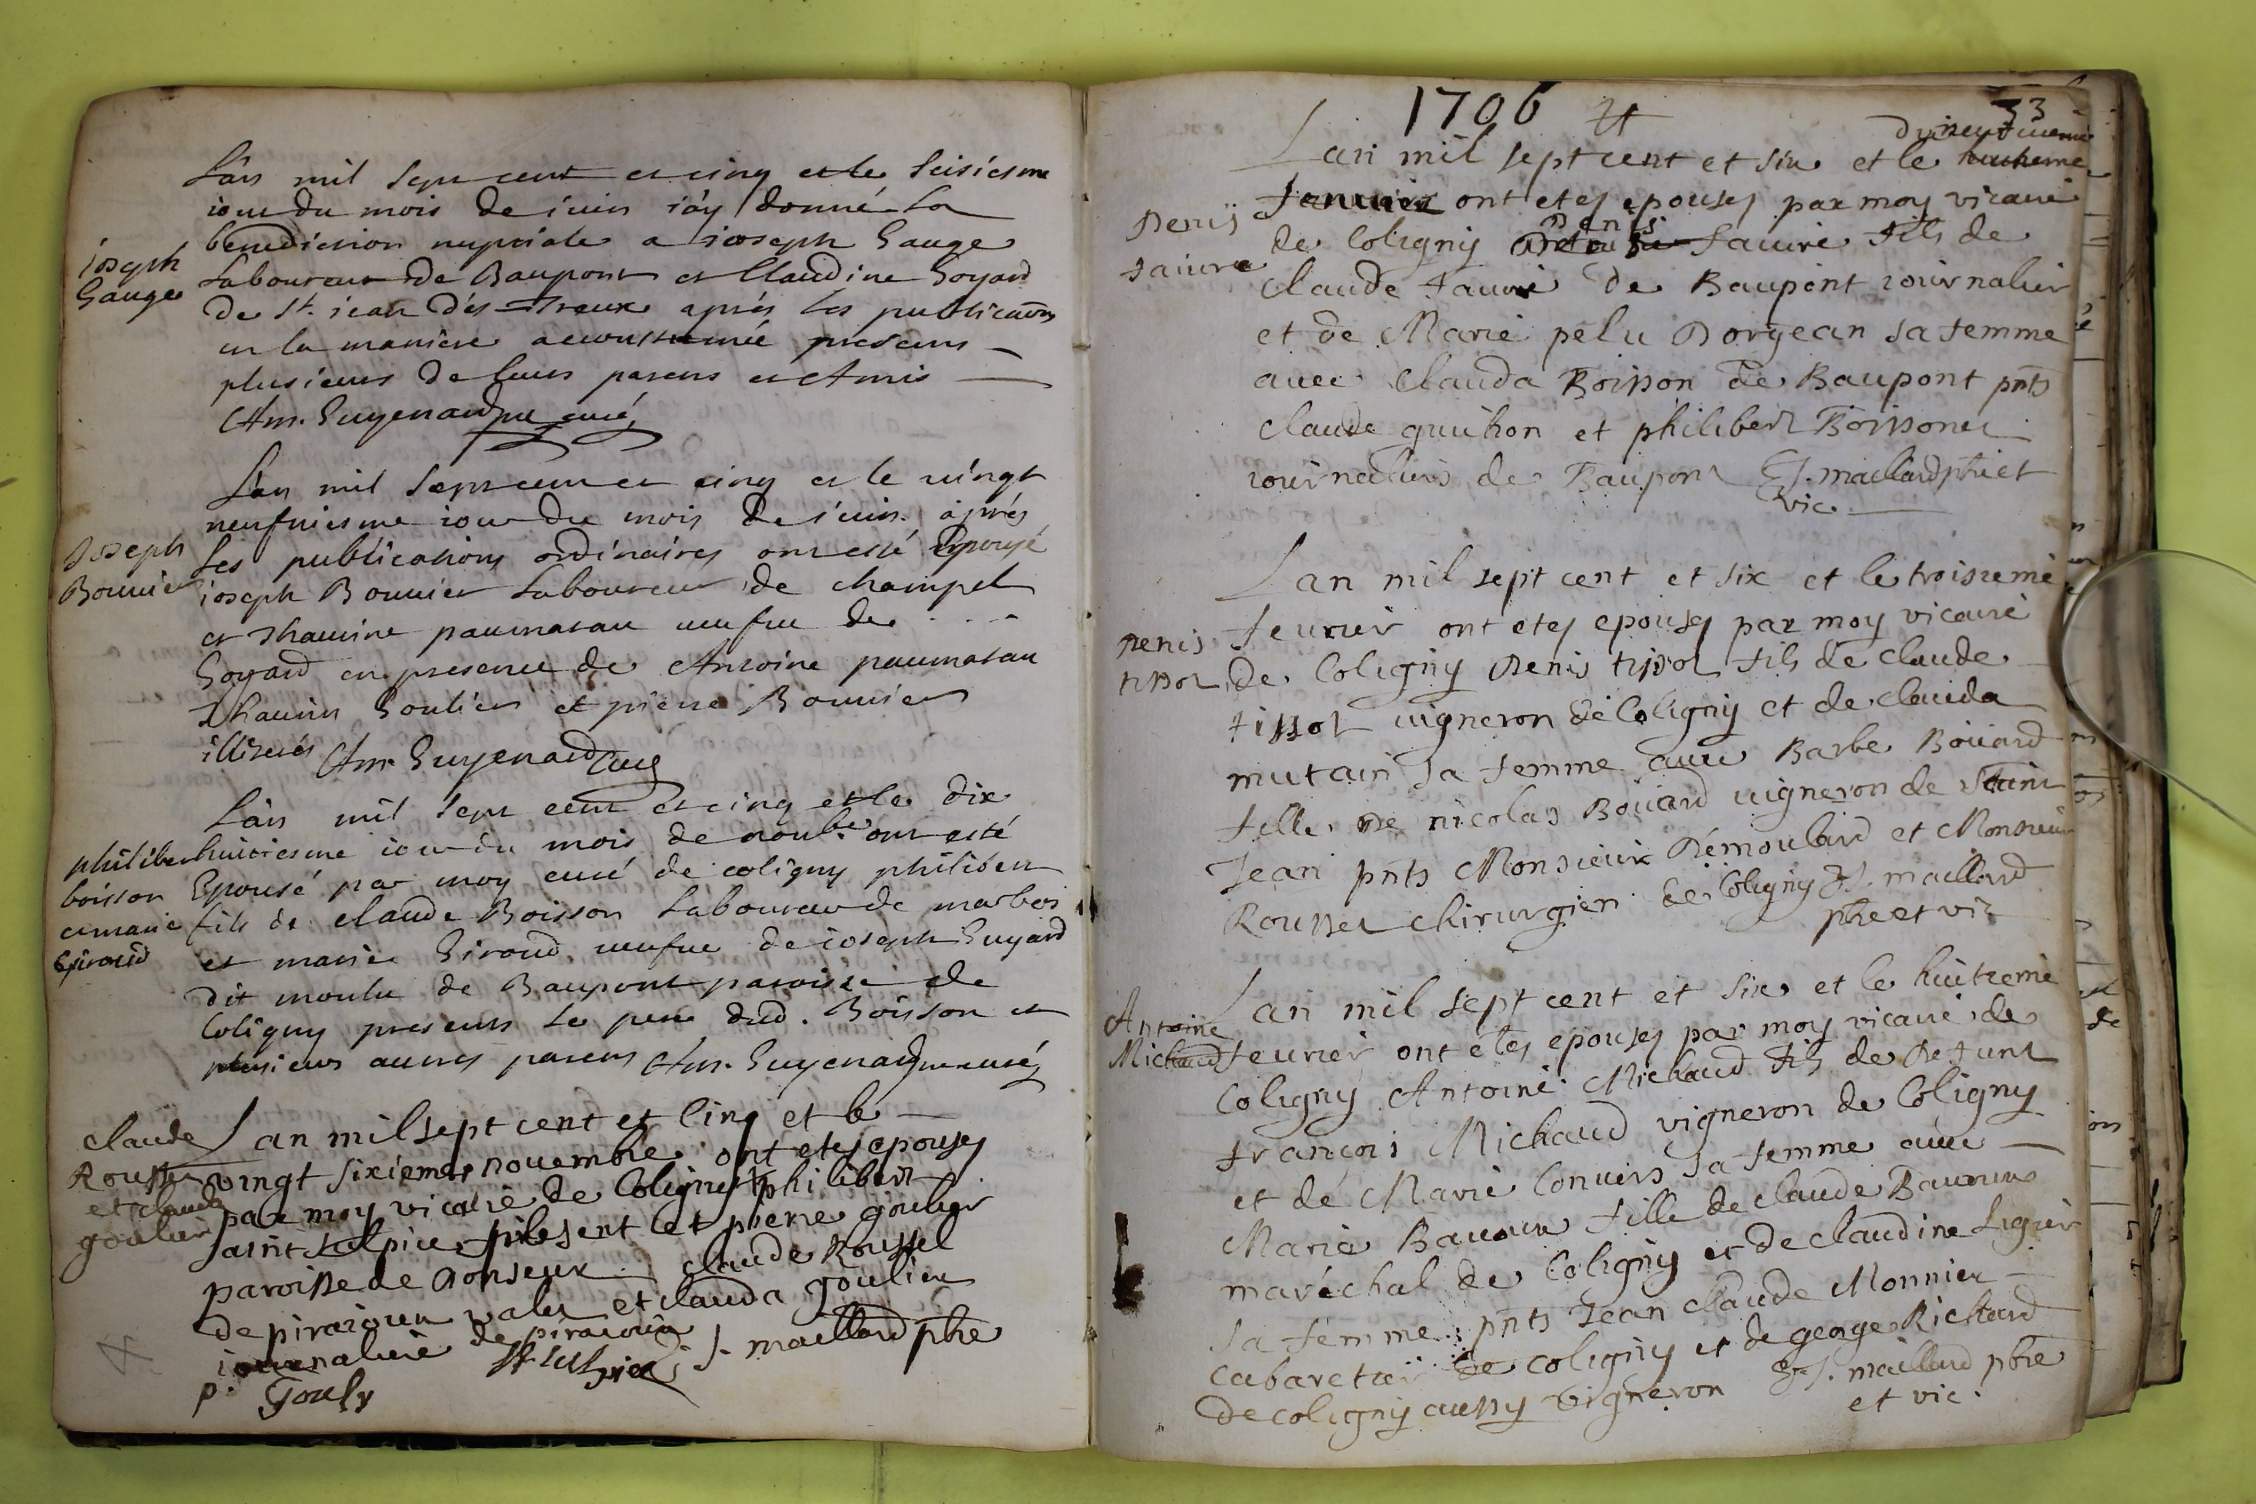 Lan mil sept cent et cinq et le seisiesme
iour du mois de iuin i'ay donné la
benediction nuptiale a ioseph Gauge
ioseph
Gauge
laboureur de Baupont et Claudine Goyard
de St. iean dés Treux aprés les publications
en la maniere accoustumée presens
plusieurs de leurs parens et Amis
Am. Guyenard curé
Lan mil sept cent et cinq et le vingt
neufuiesme iour du mois de iuin aprés
Joseph
Bouuier
les publications ordinaires ont esté Epousé
ioseph Bouuier laboureur de champel
et Thauine paumatau ueufue de ....
Goyard en presence de Antoine paumatau
Thauin Goulier et pierre Bouuier
illiterés Am. Guyenard Curé
Lan mil sept cent et cinq et le dix
huictiesme iour du mois de noubre ont esté
philiber
boisson
et marie
Giroud
Epousé par moy curé de coligny philibert
fils de claude Boisson laboureur de marbois
et marie Giroud ueufue de ioseph Guyard
dit moulu de Baupont paroisse de
Coligny presens le pere dud. Boisson et
plusieurs autres parens Am. Guyenard curé
claude
Roussel
et clauda
goulier
Lan mil sept cent et Cinq et le
vingt sixieme nouembre ont etes epouses
par moy vicaire de Coligny philibert
saint sulpice present et pierre goulier
paroisse de Donseux claude Roussel
de piraioux valet et clauda goulier
iournaliere de piraioux J. maillard pbre
p. Gouly
1706
33
dixneufuieme
Lan mil sept cent et six et le huitieme
Januier ont etes epouses par moy vicaire
Denis
faiure
Denis
de Coligny faiure fils de
claude faiure de Baupont iournalier
et de Marie pelu Dorgean sa femme
auec Clauda Boisson de Baupont pnts
claude guichon et philibert Boissonet
iournaliers de Baupont J. maillard pbre et
vic.
Lan mil sept cent et six et le troisieme
feurier ont etes epouses par moy vicaire
Denis
tissot
de Coligny Denis tissot fils de claude
tissot uigneron de Coligny et de clauda
mutain sa femme auec Barbe Bouard
fille de nicolas Bouard uigneron de Saint
Jean pnts Monsieur Démoulard et Monsieur
Rousset chirurgien de Coligny J. maillard
pbre et vic
Lan mil sept cent et six et le huitieme
Antoine
Michaud
feurier ont étes epouses par moy vicaire de
Coligny Antoine Michaud fils de Defunt
françois Michaud vigneron de Coligny
et de Marie Conuers sa femme auec
Marie Bauoux fille de claude Bauoux
maréchal de Coligny et de claudine Liguer
sa femme pnts Jean claude Monnier
cabaretier de coligny et de george Richard
de coligny aussy vigneron J. maillard pbre
et vic.